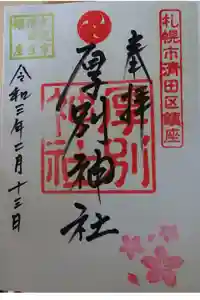 札幌市清田区鎮座
奉拝
厚別神社
厚別神社
令和三年二月十三日